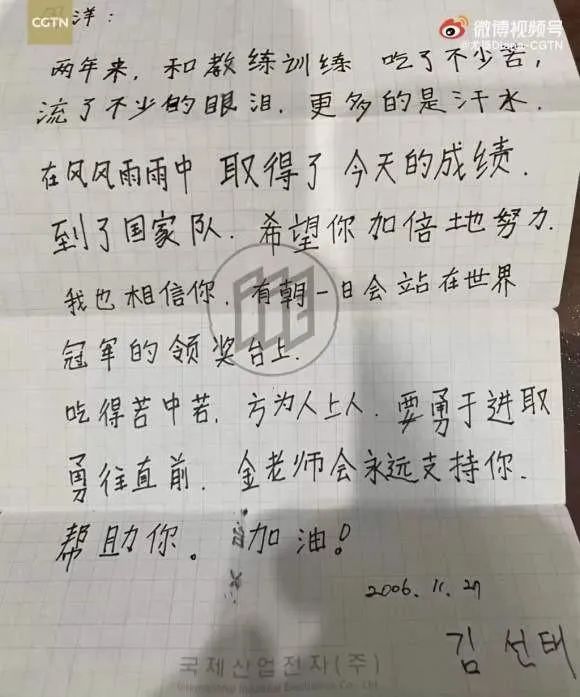 CGTN
微博视频号
-CGTN
洋：
两年来，和教练训练 吃了不少苦，
流了不少的眼泪．更多的是汗水．
在风风雨雨中 取得了今天的成绩．
到了国家队．希望你加倍地努力．
我也相信你，有朝一日会站在世界
冠军的领奖台上．
吃得苦中苦，方为人上人．要勇于进取
勇往直前．金老师会永远支持你．
帮助你。加油！
2006.11.27
김선태
국제산업전자(주)